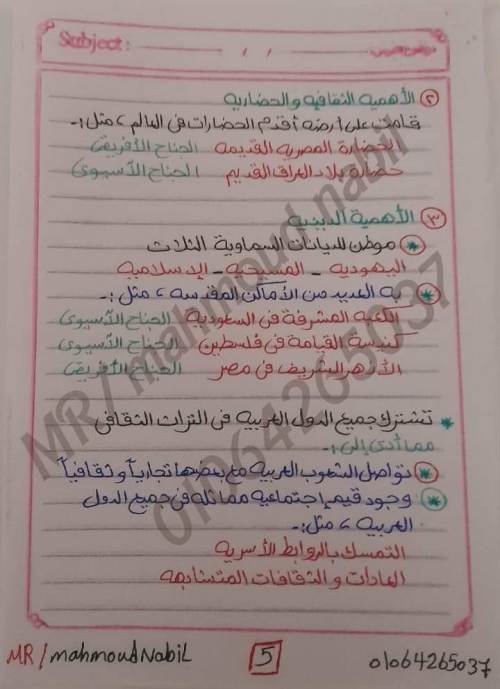 Subject:
② الأهمية الثقافية والحضارية
قامت على أرضه أقدم الحضارات فى العالم ، مثل :-
الحضارة المصرية القديمة الجناح الأفريقى
حضارة بلاد العراق القديم الجناح الآسيوى
③ الأهمية الدينية
* موطن للديانات السماوية الثلاث
اليهودية - المسيحية - الإسلامية
* به العديد من الأماكن المقدسة ، مثل :-
الكعبة المشرفة فى السعودية الجناح الآسيوى
كنيسة القيامة فى فلسطين الجناح الآسيوى
الأزهر الشريف فى مصر الجناح الأفريقى
* تشترك جميع الدول العربية فى التراث الثقافى
مما أدى إلى :-
* تواصل الشعوب العربية مع بعضها تجارياً وثقافياً
* وجود قيم إجتماعية مماثلة فى جميع الدول
العربية ، مثل :-
التمسك بالروابط الأسرية
العادات والثقافات المتشابهة
MR/ mahmoud nabil
01064265037
MR/mahmoudNabiL
5
01064265037